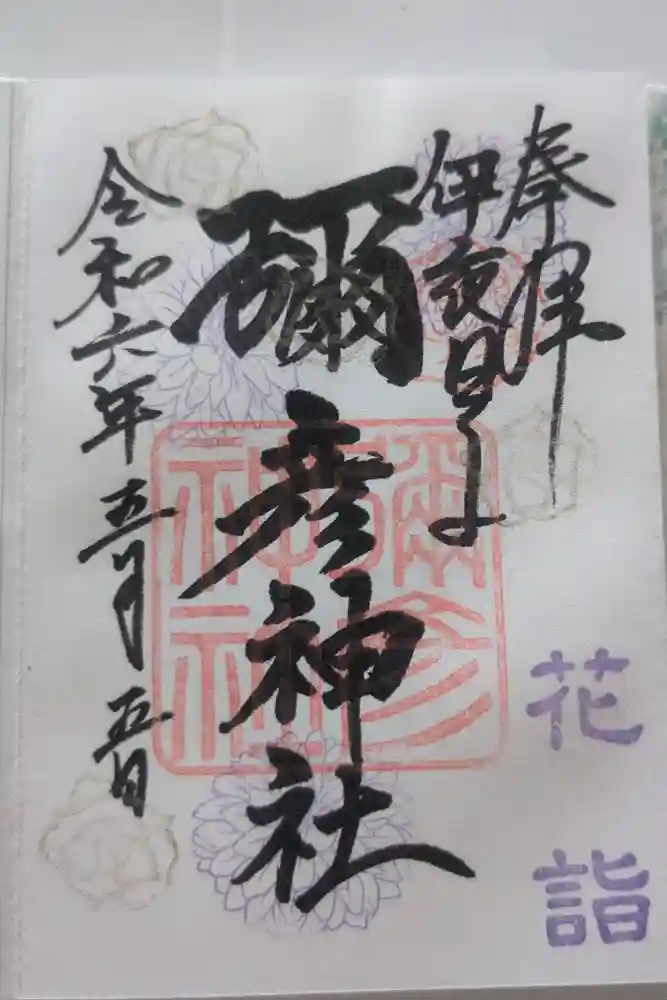 奉拝
伊夜日子
彌彦神社
彌彦
神社
令和六年五月五日
花詣